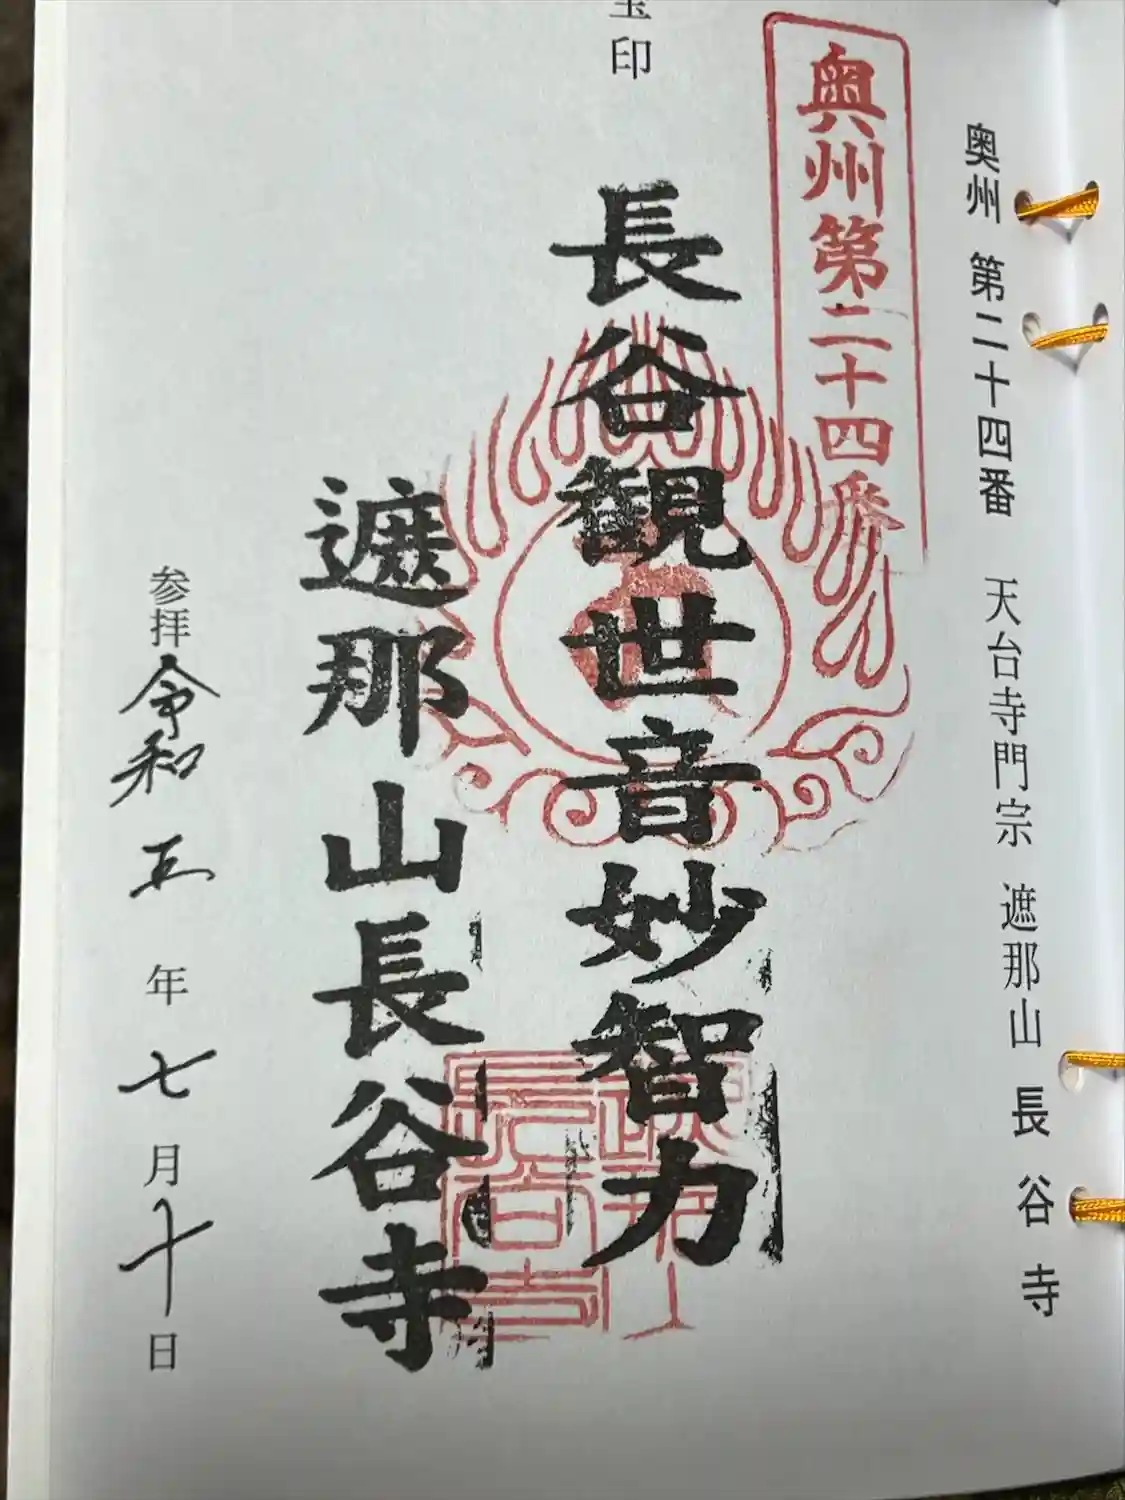 奥州 第二十四番 天台寺門宗 遮那山 長谷寺
奥州第二十四番
宝印
長谷観世音妙智力
遮那山長谷寺
参拝令和五年七月十日